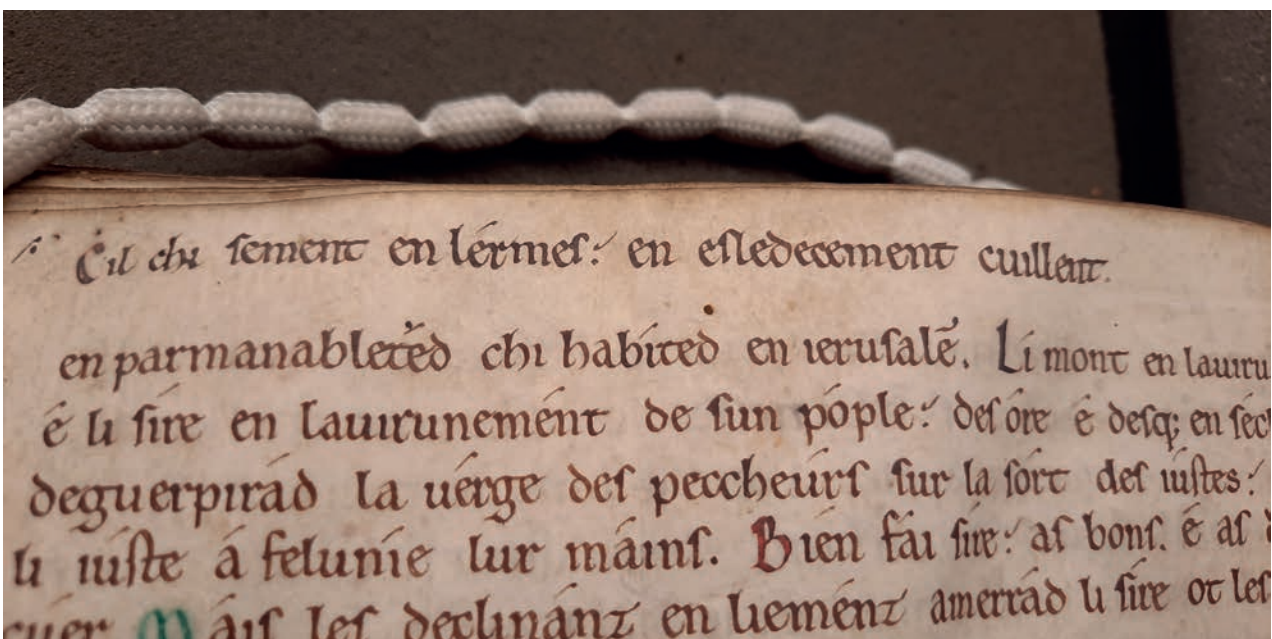 Cil chi ſement en lérmeſ: en eſledecement cuillent.
en parmanableted chi habíted en ieruſalē. Li mont en lauiru
é li ſire en lauirunemént de ſun póple: deſ óre é deſq; en ſécl
deguerpirád la uérge deſ peccheúrſ ſur la ſort deſ iuſtes:
li iuſte á feluníe lur máinſ. Bién fái ſire: aſ bonſ. é aſ d
cuer Máiſ leſ declinánz en liemént amerrád li ſire ot leſ